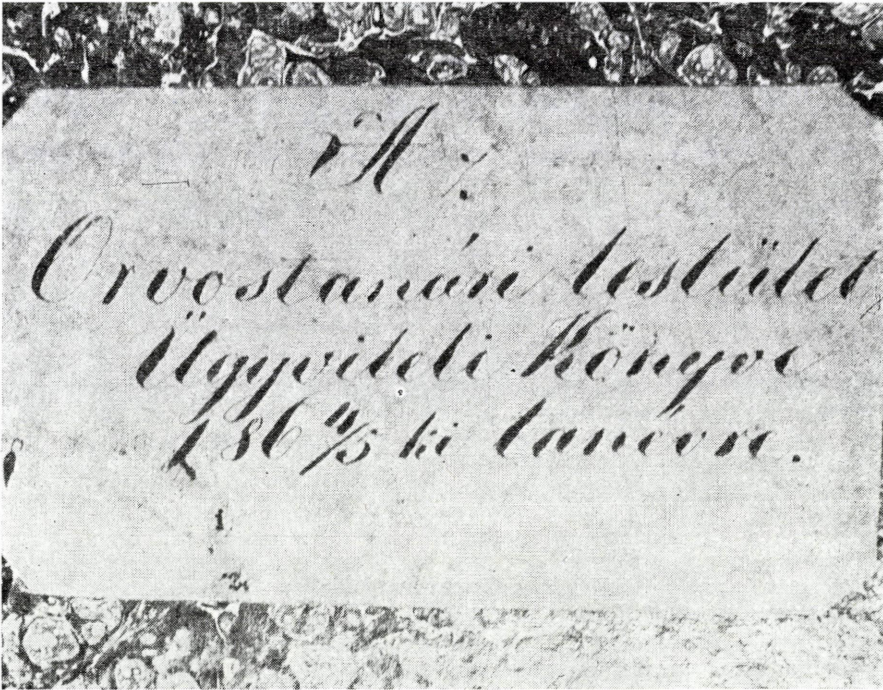 Az
Orvostanári testület
Ügyviteli Könyve
186 4/5 ki tanévre.
1
2.